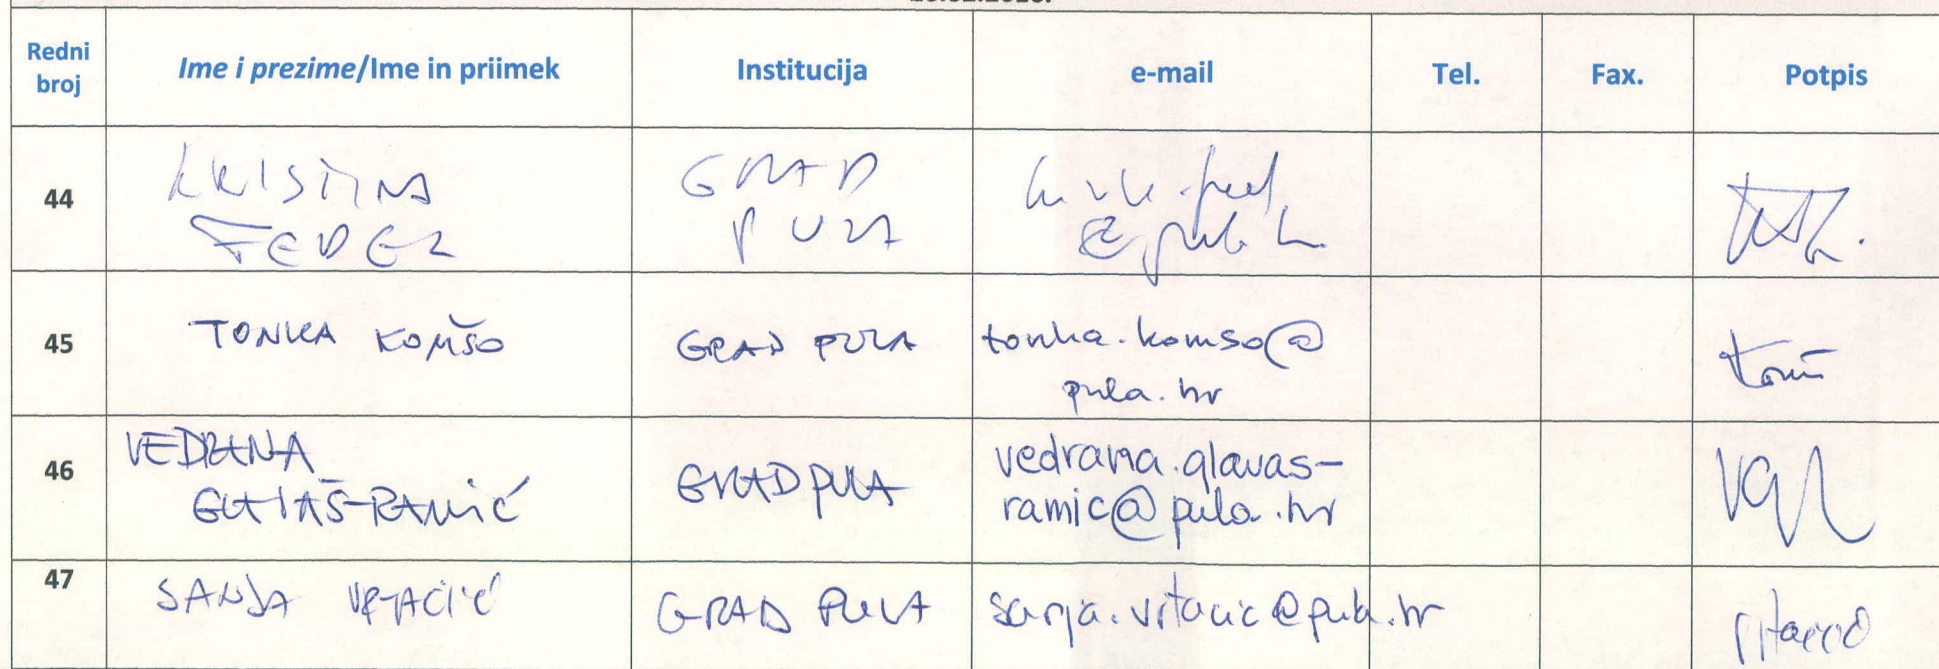 Redni broj
Ime i prezime/Ime in priimek
Institucija
e-mail
Tel.
Fax.
Potpis
44
KRISTINA
FEDER
GRAD
PULA
45
TONKA KOMŠO
GRAD PULA
tonka.komso@
pula.hr
46
VEDRANA
GLAVAŠ-RAMIĆ
GRAD PULA
vedrana.glavas-
ramic@pula.hr
47
SANJA
GRAD PULA